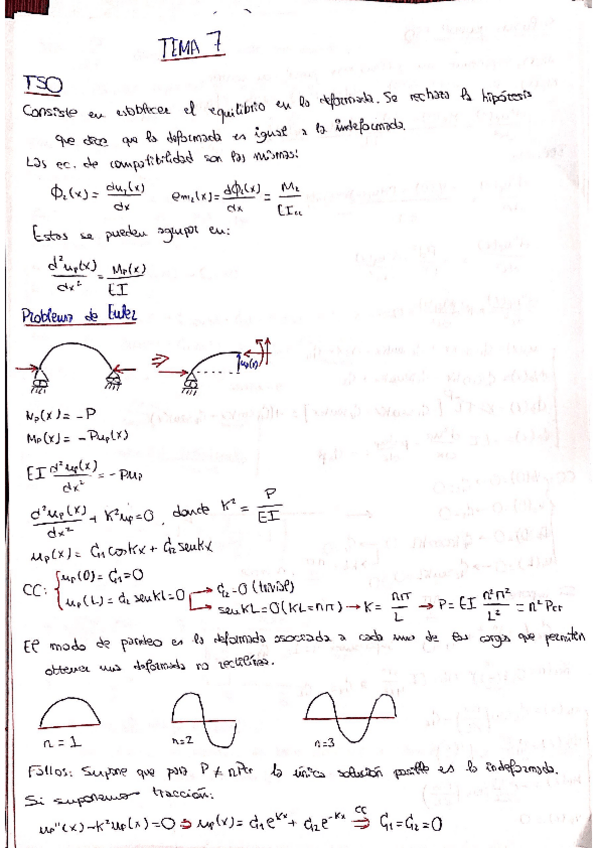 TEMA 7
TSO
Consiste en establecer el equilibrio en la deformada. Se rechaza la hipótesis
que dice que la deformada es igual a la indeformada.
Las ec. de compatibilidad son las mismas:
ϕz(x) = duy(x)/dx   emz(x) = dϕz(x)/dx = Mz/EIzz
Estas se pueden agrupar en:
d²up(x)/dx² = Mp(x)/EI
Problema de Euler
up(x)
Np(x) = -P
Mp(x) = -Pup(x)
EI d²up(x)/dx² = -Pup
d²up(x)/dx² + K²up = 0, donde K² = P/EI
up(x) = C1 cosKx + C2 senKx
CC: { up(0) = C1 = 0
up(L) = C2 senKL = 0 → C2 = 0 (trivial)
→ senKL = 0 (KL = nπ) → K = nπ/L → P = EI n²π²/L² = n² Pcr
El modo de pandeo es la deformada asociada a cada una de las cargas que permiten
obtener una deformada no rectilínea.
n = 1   n=2   n=3
Fallos: Supone que para P ≠ nPcr la única solución posible es la indeformada.
Si suponemos tracción:
up''(x) - K²up(x) = 0 ⇒ up(x) = C1e^Kx + C2e^-Kx CC⇒ C1 = C2 = 0